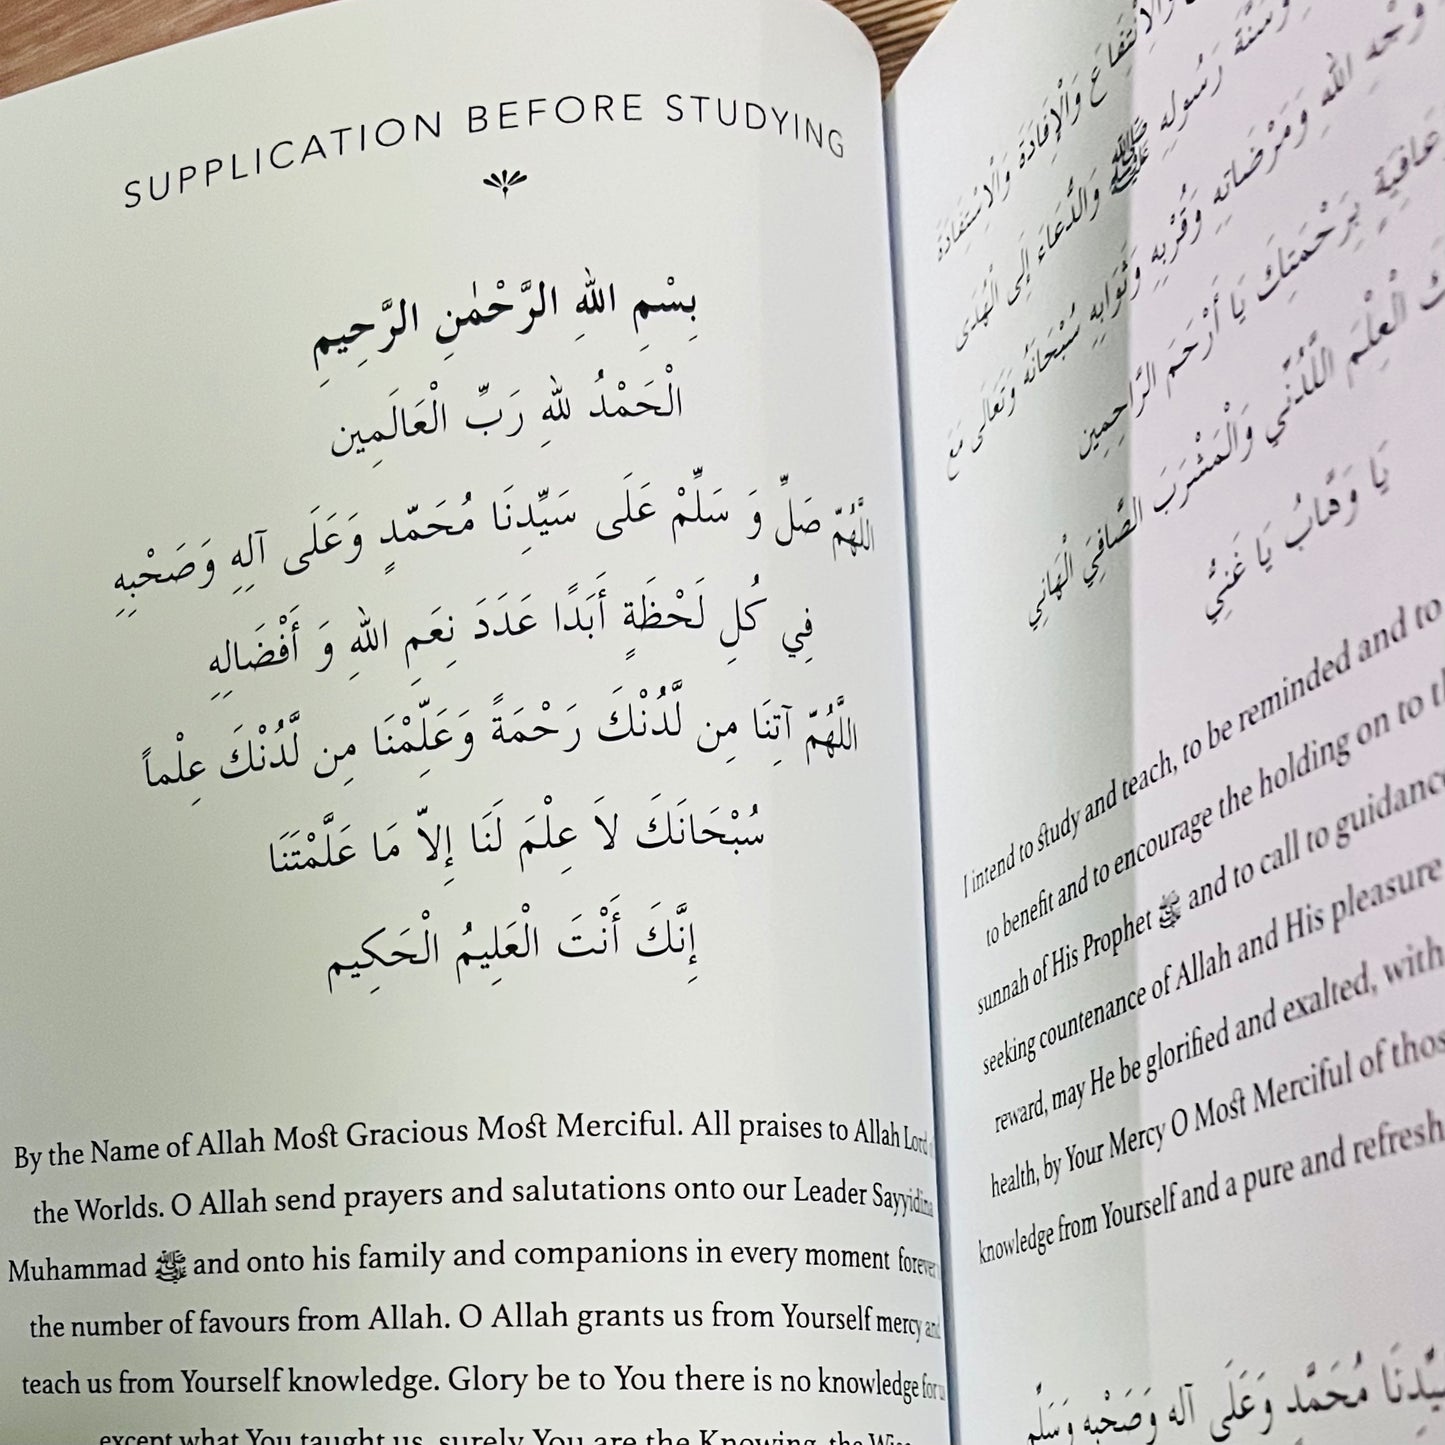 SUPPLICATION BEFORE STUDYING
بِسْمِ اللهِ الرَّحْمٰنِ الرَّحِيمِ
الْحَمْدُ للهِ رَبِّ الْعَالَمِين
اللَّهُمّ صَلِّ وَ سَلِّمْ عَلَى سَيِّدِنَا مُحَمّدٍ وَعَلَى آلِهِ وَصَحْبِهِ
فِي كُلِ لَحْظَةٍ أَبَدًا عَدَدَ نِعَمِ اللهِ وَ أَفْضَالِهِ
اللَّهُمّ آتِنَا مِن لَّدُنْكَ رَحْمَةً وَعَلِّمْنَا مِن لَّدُنْكَ عِلْماً
سُبْحَانَكَ لاَ عِلْمَ لَنَا إِلاّ مَا عَلَّمْتَنَا
إِنَّكَ أَنْتَ الْعَلِيمُ الْحَكِيم
By the Name of Allah Most Gracious Most Merciful. All praises to Allah Lord
the Worlds. O Allah send prayers and salutations onto our Leader Sayyidina
Muhammad ﷺ and onto his family and companions in every moment forever
the number of favours from Allah. O Allah grants us from Yourself mercy and
teach us from Yourself knowledge. Glory be to You there is no knowledge for
except what You taught us, surely You are the Knowing, the
وَالْاِنْتِفَاعَ وَالْإِفَادَةَ وَالْاِسْتِفَادَةَ
وَسُنَّةَ رَسُولِهِ ﷺ وَالدُّعَاءَ إِلَى الْهُدَى
وَجْهِ اللهِ وَمَرْضَاتِهِ وَقُرْبِهِ وَثَوَابِهِ سُبْحَانَهُ وَتَعَالَى مَعَ
عَافِيَةِ بِرَحْمَتِكَ يَا أَرْحَمَ الرَّاحِمِين
الْعِلْمَ اللَّدُنِّي وَالْمَشْرَبَ الصَّافِيَ الْهَانِي
يَا وَهَّابُ يَا غَنِيُّ
I intend to study and teach, to be reminded and to
to benefit and to encourage the holding on to
sunnah of His Prophet ﷺ and to call to guidance
seeking countenance of Allah and His pleasure
reward, may He be glorified and exalted, with
health, by Your Mercy O Most Merciful of
knowledge from Yourself and a pure and
مُحَمَّدٍ وَعَلَى آلِهِ وَصَحْبِهِ وَسَلِّم